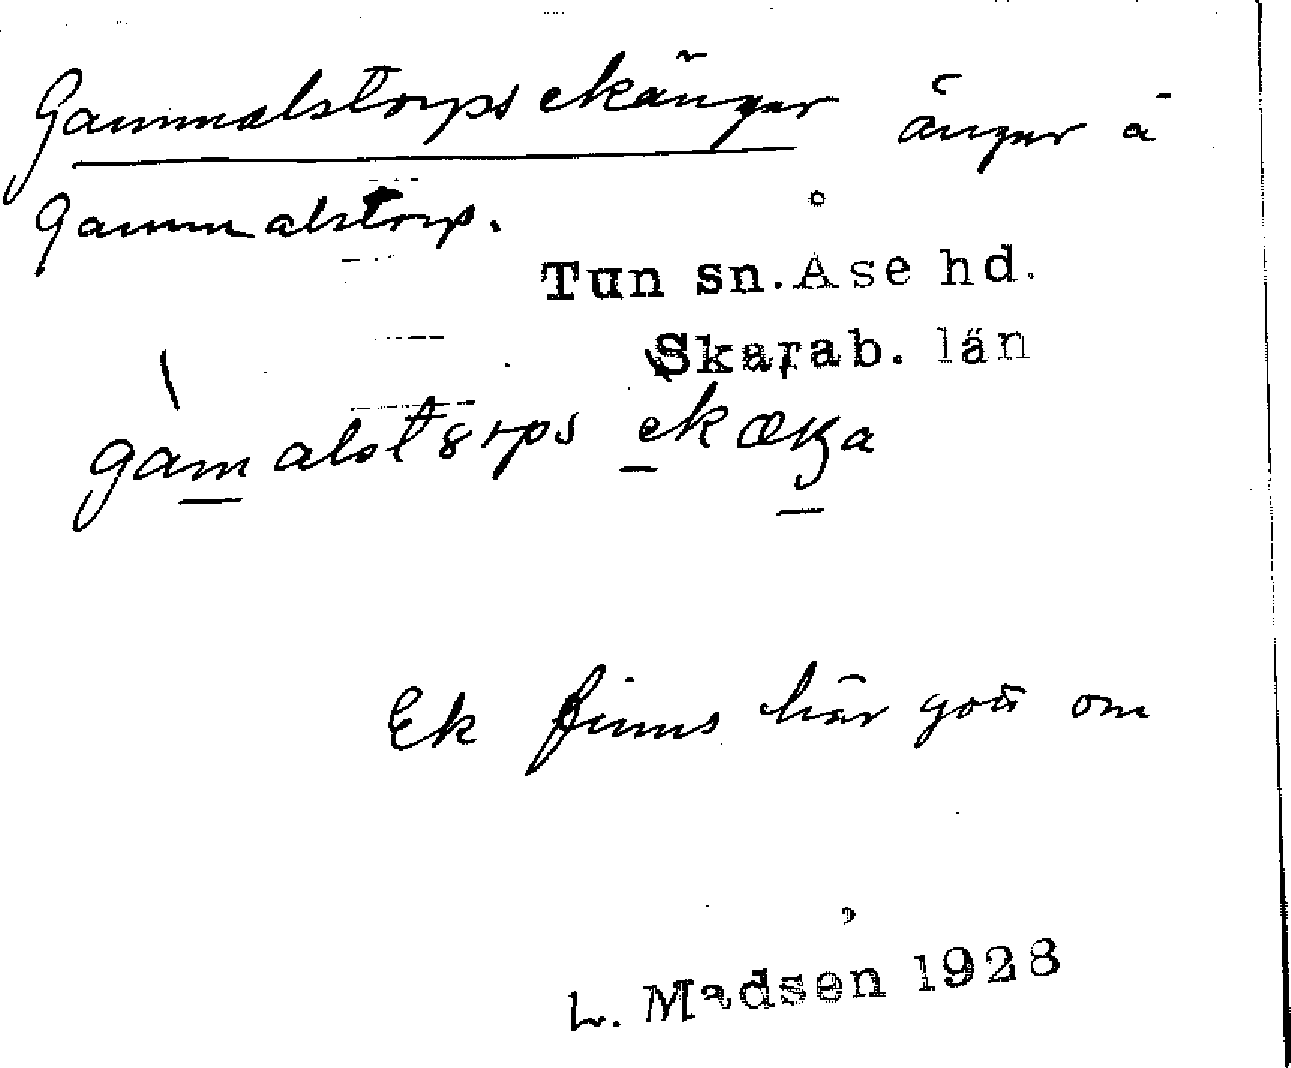 Gammalstorps ekänger änger å
Gammalstorp.
Tun sn. Åse hd.
Skarab. län
gamalstorps ekæŋa
Ek finns här gott om
L. Madsen 1928